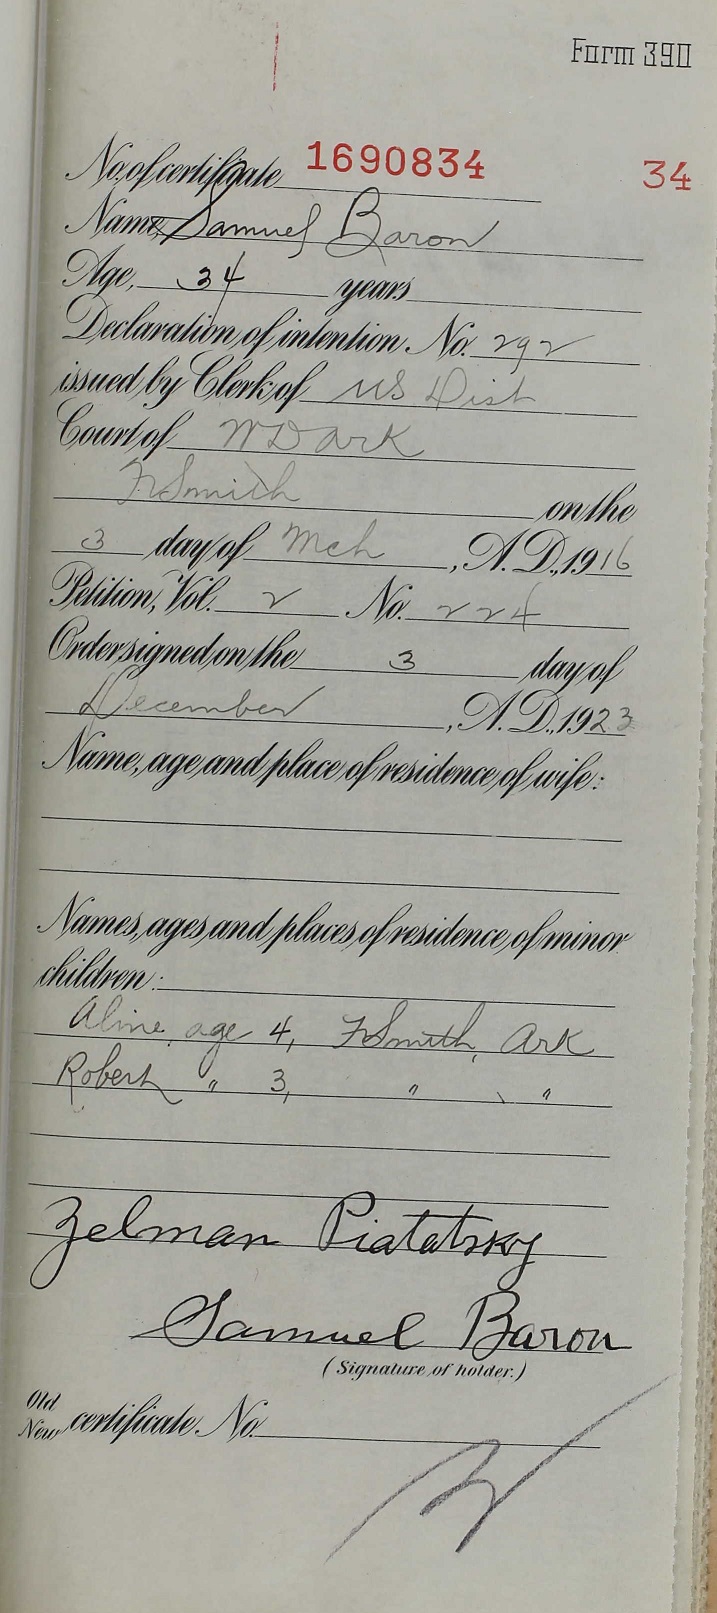 Form 390
No. of certificate 1690834 34
Name, Samuel Baron
Age, 34 years
Declaration of intention No. 292
issued by Clerk of US Dist
Court of W D Ark
Ft Smith on the
3 day of Mch , A. D., 1916
Petition, Vol. 2 No. 224
Order signed on the 3 day of
December , A. D., 1923
Name, age, and place of residence of wife:
Names, ages, and places of residence of minor
children:
Aline, age 4, Ft Smith, Ark
Robert " 3, " "
Zelman Piatatsky
Samuel Baron
(Signature of holder.)
Old
New certificate No.